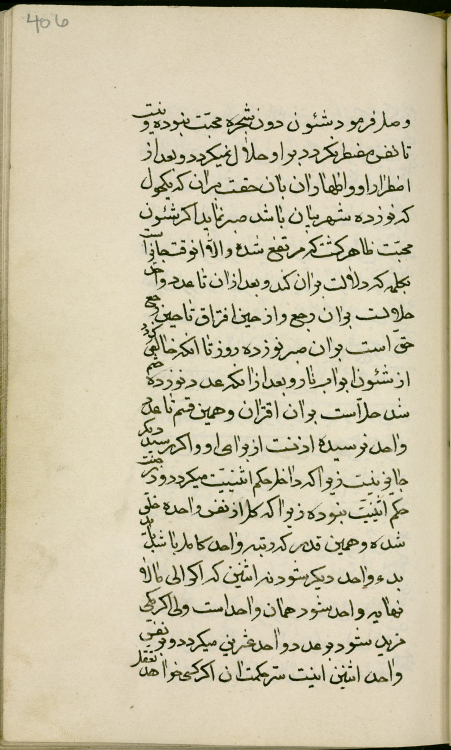 406
وصل فرمود شئون دون شجره محبت نبوده و نیست
تا نفس مضطر نگردد بر او حلال نمیگردد و بعد از
اضطرار او و اظهار ان بان حقست بر ان که یکحول
که نوزده شهر بیان باشد صبر نماید اگر شئون
محبت ظاهر گشت که مرتفع شده والا انوقت جایز است
بکلمه که دلالت بر ان کند و بعد از ان تا عدد واحد
حلالست بر ان رجع و از حین افتراق تا حین رجع
حق است بر ان صبر نوزده روز تا انکه خالقی
از شئون ابواب نار و بعد از انکه عدد نوزده ختم
شد حلالست بر ان اقتران و همین قسم تا عدد
واحد نرسیده اذنست از برای او و اگر رسید دیگر
جایز نیست زیرا که داخل حکم اثنینیت میگردد و در جنت
حکم اثنینیت نبوده زیرا که کل از نفس واحده خلق
شده و همین قدر که رتبه واحد کامل باشد
بدء واحد دیگر شود نه اثنین که اگر الی مالا
نهایه واحد شود همان واحد است ولی اگر یکی
مزید شود بر عدد واحد غیر بی میگردد و در نفس
واحد اثنین اینست سر حکمت ان اگر کسی خواهد تعقل